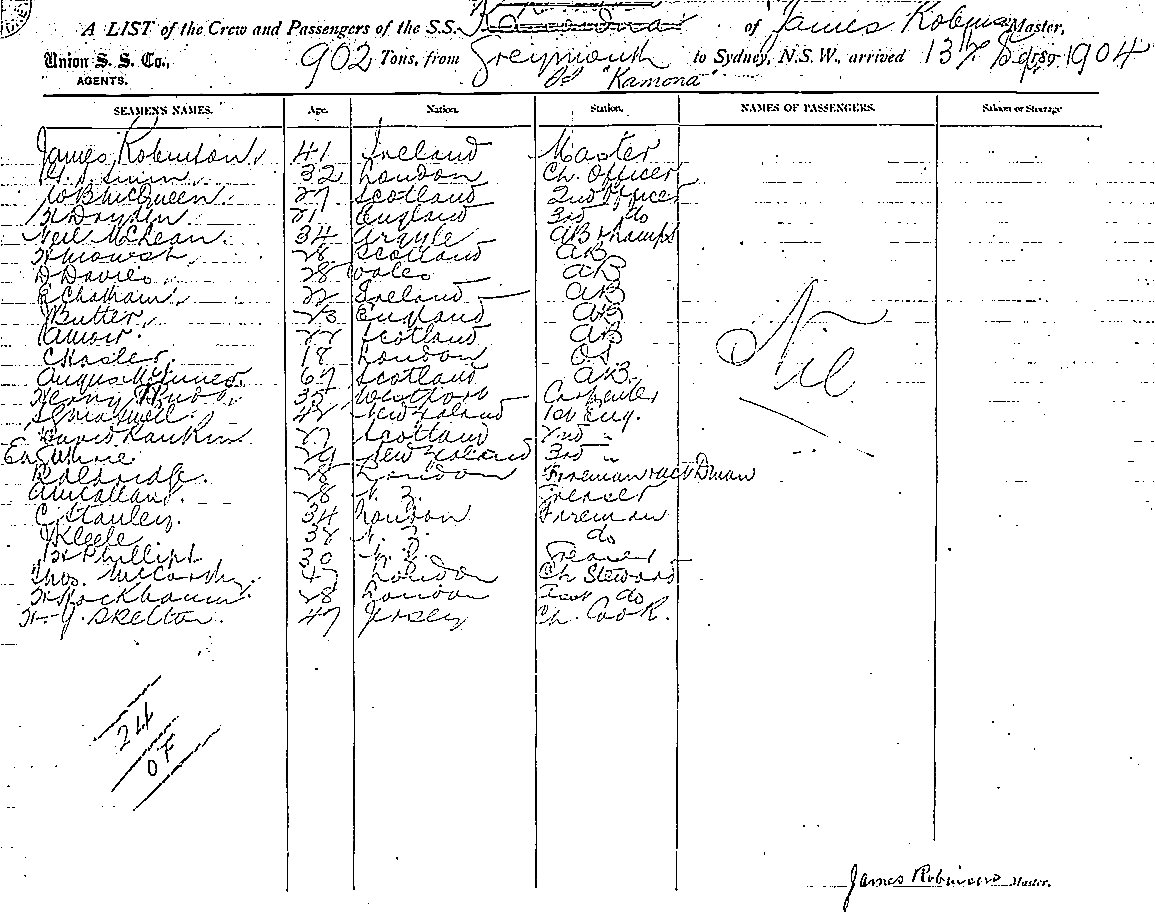 A LIST of the Crew and Passengers of the S.S. of James Robinson Master,
Union S. S. Co., AGENTS. 902 Tons, from Greymouth to Sydney, N.S.W., arrived 13th Sep 1904
SS "Kamona"
SEAMEN'S NAMES. Age. Nation. Station. NAMES OF PASSENGERS. Saloon or Steerage
James Robinson 41 Ireland Master
32 London Ch. Officer
W B McQueen 27 Scotland 2nd Officer
H Dryden 21 England 3rd do
Neil McLean 34 Argyle AB & Lamps
28 Scotland AB
D Davies 28 Wales AB
E Chatham 22 Ireland AB
J Butter 23 England AB
A Moir 22 Scotland AB
C Hasler 18 London OS
Angus McInnes 67 Scotland AB
Henry 35 Westport Carpenter
Maxwell 42 New Zealand 1st Eng.
David Rankin 27 Scotland 2nd "
Guthrie 29 New Zealand 3rd "
28 London Fireman & act Dman
A McCallum 28 N. Z. Greaser
C Stanley 34 London Fireman
J Keele 38 N. Z. do
H Phillips 30 N. Z. Greaser
Thos. McCarthy 47 London Ch Steward
28 London do
H. J. Skelton 47 Jersey Ch. Cook.
Nil
24
OF
James Robinson Master.